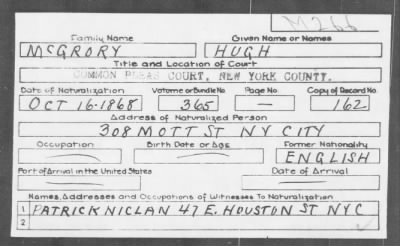 M266
Family Name Given Name or Names
McGRORY HUGH
Title and Location of Court
COMMON PLEAS COURT, NEW YORK COUNTY.
Date of Naturalization Volume or Bundle No Page No Copy of Record No.
OCT 16-1868 365 — 162
Address of Naturalized Person
308 MOTT ST NY CITY
Occupation Birth Date or Age Former Nationality
ENGLISH
Port of Arrival in the United States Date of Arrival
Names, Addresses and Occupations of Witnesses To Naturalization
1 PATRICK NICLAN 47 E. HOUSTON ST NYC
2